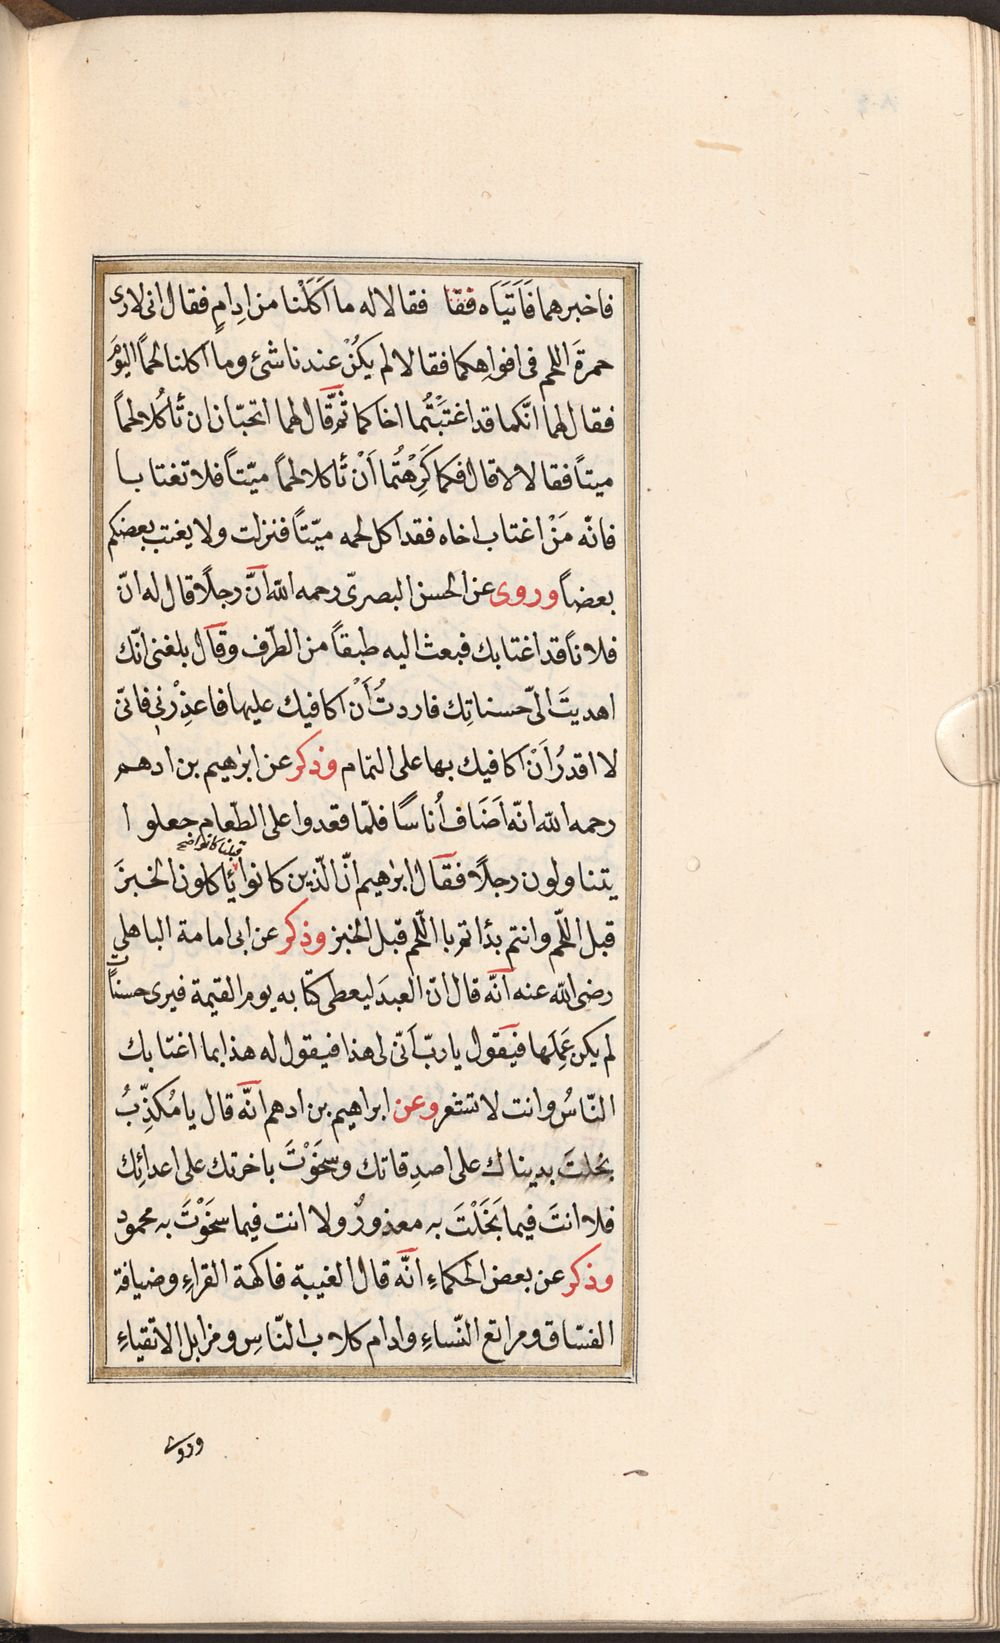 فاخبرهما فَاَتَيَاه فقا فقالا له ما اَكَلْنا من اِدِامٍ فقال انى لارى
حمرةَ اللحم فى افواهِكما فقالا لم يكُنْ عندنا شئ وما اكلنا لحمًا اليومَ
فقال لهما انّكما قد اغتبْتُما اخاكما ثمّ قال لهما اتحبّان ان تأكُلا لحمًا
ميتاً فقالا لا قال فكما كَرِهْتُما اَنْ تأكلا لحمًا ميّتاً فلا تغتابا
فانّه مَنْ اغتاب اخاه فقد اكل لحمه ميّتاً فنزلت ولا يغتب بعضكم
بعضاً وروى عن الحسن البصرىّ رحمه الله انّ رجلًا قال له انّ
فلاناً قد اغتابك فبعث اليه طبقاً من الطّرف وقال بلغنى انّك
اهديتَ الىّ حسناتِك فاردتُ أَنْ اكافيك عليها فاعذِرْنى فانّى
لا اقدرُ اَنْ اكافيك بها على التمام وذكر عن ابرهيم بن ادهم
رحمه الله انّه اَضَاف اُناسًا فلمّا قعدوا على الطّعام جعلوا ا
يتناولون رجلًا فقال ابرهيم انّ الّذين كانوا يأكلون الخبزَ
قبلنا كانوا صح
قبل اللّحم وانتم بدأتم باللّحم قبل الخبز وذكر عن ابى امامة الباهلى
رضى الله عنه انّه قال انّ العبدَ ليعطى كتابه يوم القيمة فيرى حسناتٍ
لم يكن عَمِلَها فيقول يا ربّ اَنّى لى هذا فيقول له هذا بما اغتابك
النّاسُ وانت لا تشعر وعن ابراهيم بن ادهم انّه قال يا مُكذِّبُ
بخلتَ بديناك على اصدقائك وسخَوْتَ باخرتك على اعدائِك
فلا انتَ فيما بَخَلْتَ به معذورٌ ولا انت فيما سخَوْتَ به محمود
وذكر عن بعض الحكماءِ انّه قال الغيبة فاكهة القراءِ وضيافة
الفسّاق ومراتع النّساءِ وادام كلاب النّاسِ ومزابل الاتقياءِ
وروى